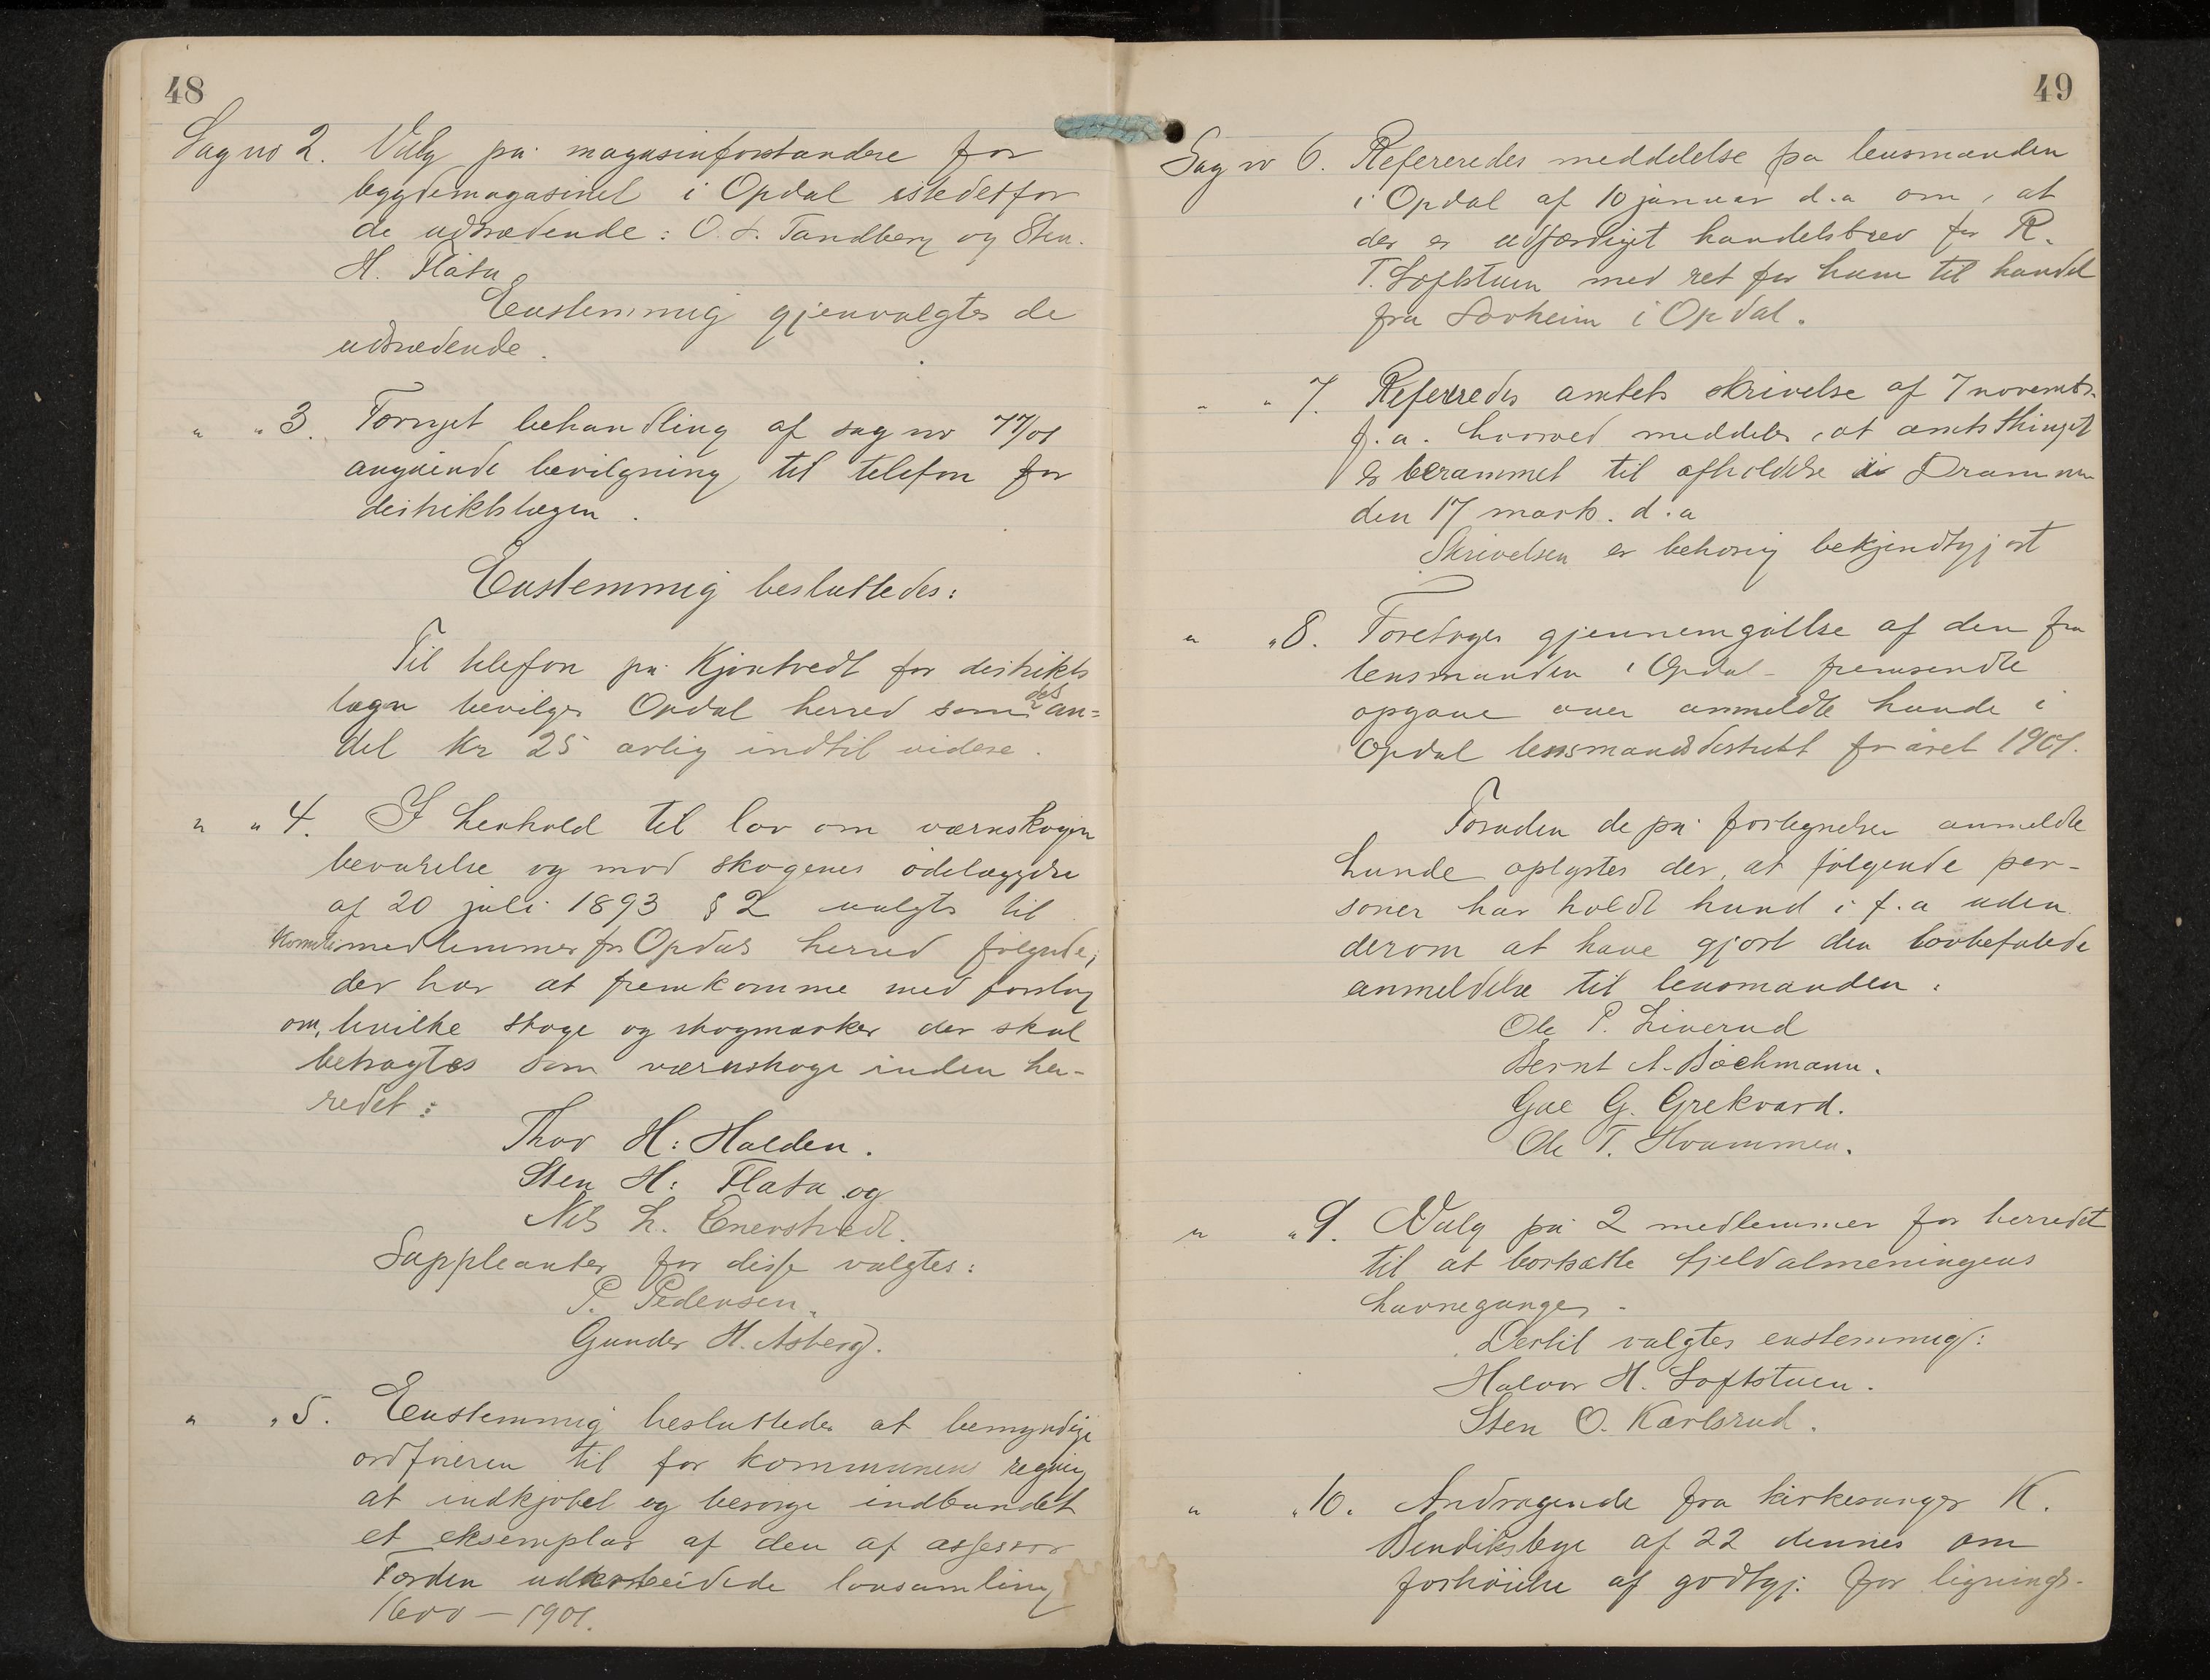 48
Sag no 2. Valg på magasinforstandere for
bygdemagasinet i Opdal istedetfor
de udtrædende: O. L. Tandberg og Sten.
H. Flåta
Enstemmig gjenvalgtes de
udtrædende.
" " 3. Fornyet behandling af sag no 77/01
angående bevilgning til telefon for
distriktslægen.
Enstemmig besluttedes:
Til telefon på Kjøntvedt for distrikts
lægen bevilges Opdal herred som dets an=
del Kr 25 årlig indtil videre.
" " 4. I henhold til lov om værnskogen
bevarelse og mod skogenes ødelæggelse
af 20 juli 1893 § 2 valgtes til
medlemmer for Opdal herred følgende,
der har at fremkomme med forslag
om, hvilke skoge og skogmarker der skal
betragtes som værnskoge inden her-
redet:
Thov H. Halden.
Sten H. Flåta og
Nils L. Enerstvedt.
Suppleanter for disse valgtes:
P. Pedersen.
Gunder H. Åsberg.
" " 5. Enstemmig besluttedes at bemyndige
ordføreren til for kommunens regning
at indkjøbet og besørge indbundet
et eksemplar af den af assessor
Færden udarbeidede lovsamling
1600 – 1901.
49
Sag no 6. Refereredes meddelelse fra lensmanden
i Opdal af 10 januar d.a om, at
der er udfærdiget handelsbrev for R.
T. Loftstuen med ret for ham til handel
fra Sørheim i Opdal.
" " 7. Refereredes amtets skrivelse af 7 novembr.
f.a. hvorved meddeles, at amtsthinget
er berammet til afholdelse i Drammen
den 17 marts. d.a
Skrivelsen er behørig bekjendtgjort
" " 8. Foretoges gjennemgåelse af den fra
lensmanden i Opdal fremsendte
opgave over anmeldte hunde i
Opdal lensmandsdistrikt for året 1901.
Foruden de på fortegnelsen anmeldte
hunde oplystes der, at følgende per-
soner har holdt hund i f.a uden
derom at have gjort den lovbefalede
anmeldelse til lensmanden:
Ole P. Liverud
Bernt A. Bøchmann.
Gae G. Grekvard.
Ole T. Hvammen.
" " 9. Valg på 2 medlemmer for herredet
til at bortsætte fjeldalmeningens
havnegange.
Dertil valgtes enstemmig:
Halvor H. Loftstuen.
Sten O. Karlsrud.
" " 10. Andragende fra kirkesanger K.
Bendiksbye af 22 dennes om
forhøielse af godtgj. for lignings-